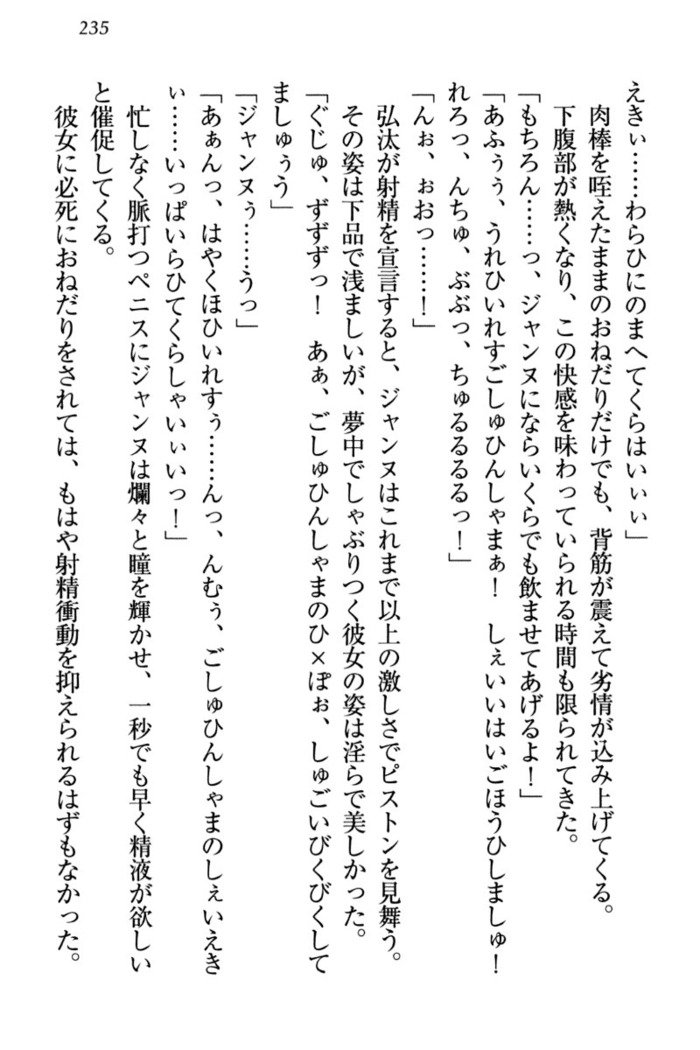 235
えきぃ……わらひにのまへてくらはいぃぃ」
　肉棒を咥えたままのおねだりだけでも、背筋が震えて劣情が込み上げてくる。
　下腹部が熱くなり、この快感を味わっていられる時間も限られてきた。
「もちろん……っ、ジャンヌにならいくらでも飲ませてあげるよ！」
「あふぅぅ、うれひいれすごしゅひんしゃまぁ！　しぇいいはいごほうひしましゅ！
れろっ、んちゅ、ぶぶっ、ちゅるるるるっ！」
「んぉ、ぉおっ……！」
　弘汰が射精を宣言すると、ジャンヌはこれまで以上の激しさでピストンを見舞う。
　その姿は下品で浅ましいが、夢中でしゃぶりつく彼女の姿は淫らで美しかった。
「ぐじゅ、ずずずっ！　あぁ、ごしゅひんしゃまのひ×ぽぉ、しゅごいびくびくして
ましゅぅう」
「ジャンヌぅ……うっ」
「あぁんっ、はやくほひいれすぅ……んっ、んむぅ、ごしゅひんしゃまのしぇいえき
ぃ……いっぱいらひてくらしゃいぃいっ！」
　忙しなく脈打つペニスにジャンヌは爛々と瞳を輝かせ、一秒でも早く精液が欲しい
と催促してくる。
　彼女に必死におねだりをされては、もはや射精衝動を抑えられるはずもなかった。